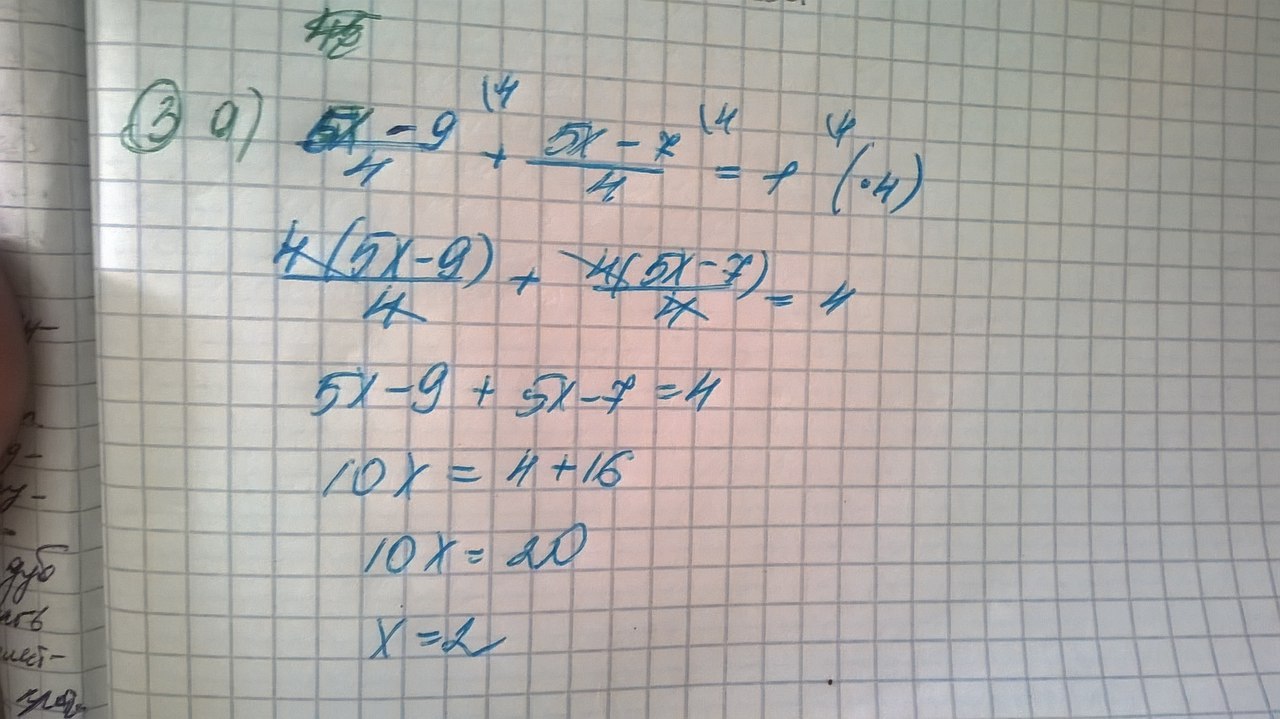 3 а) 5x - 9 \4 / 4 + 5x - 7 \4 / 4 = 1 \4 (·4)
4(5x-9) / 4 + 4(5x-7) / 4 = 4
5x-9 + 5x-7 = 4
10x = 4+16
10x = 20
x = 2
дуб